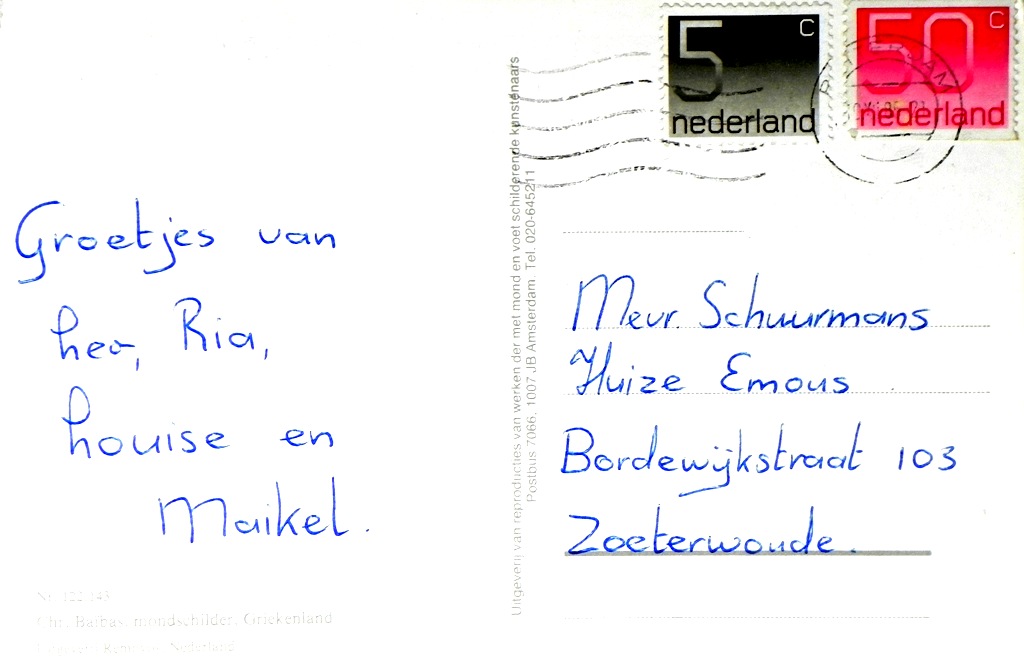 5 C
nederland
50 C
nederland
Groetjes van
Leo, Ria,
Louise en
Maikel.
Uitgeverij van reproducties van werken der met mond en voet schilderende kunstenaars
Postbus 7066, 1007 JB Amsterdam. Tel. 020-645211
Mevr. Schuurmans
Huize Emous
Bordewijkstraat 103
Zoeterwoude.
Nr. 122 143
Chr. Baibas, mondschilder, Griekenland
Nederland